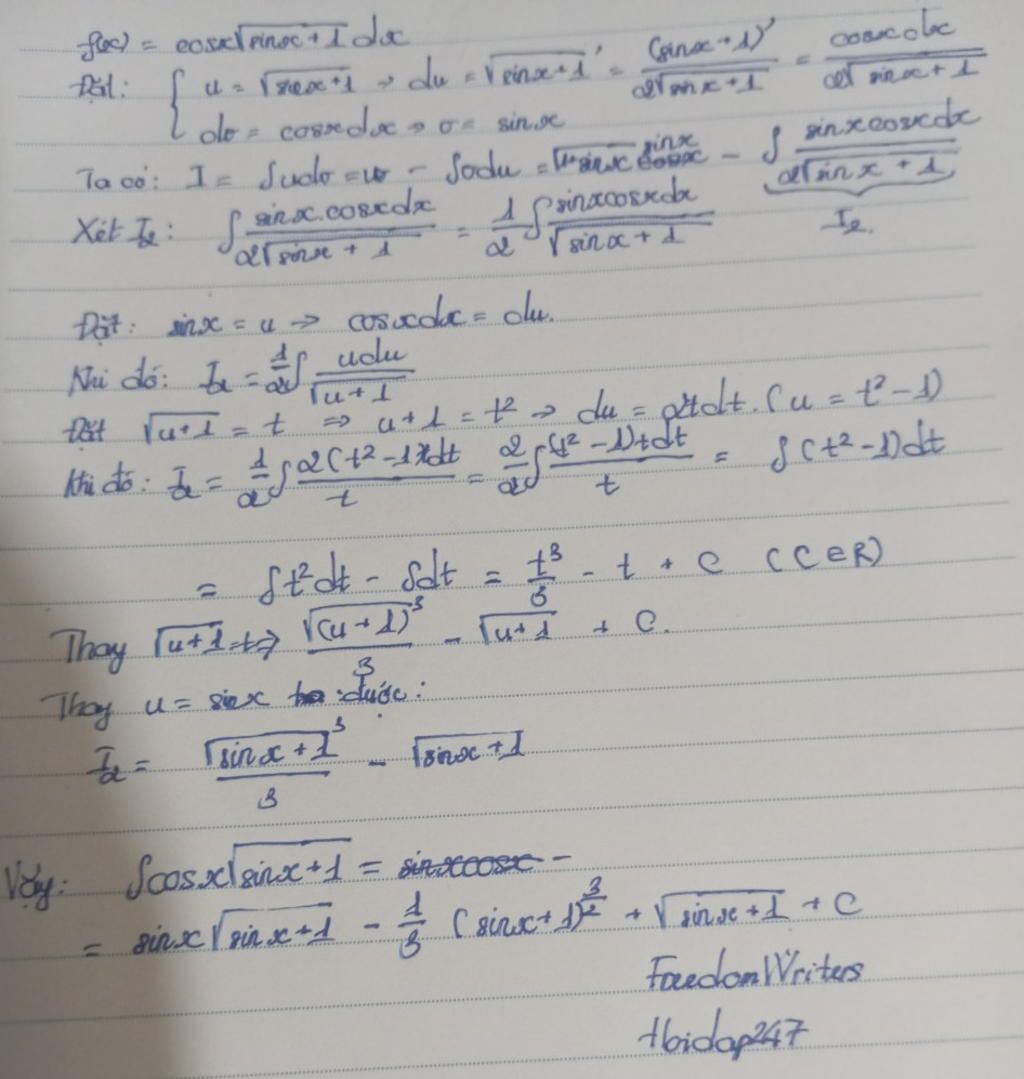 f(x) = cosx√(sinx+1) dx
Đặt: { u = √(sinx+1) → du = √(sinx+1)' = (sinx+1)'/(2√(sinx+1)) = cosxdx/(2√(sinx+1))
dv = cosxdx → v = sinx
Ta có: I = ∫udv = uv - ∫vdu = sinx - ∫ sinxcosxdx/(2√(sinx+1))
I₂.
Xét I₂: ∫ sinx.cosxdx/(2√(sinx+1)) = 1/2 ∫ sinxcosxdx/√(sinx+1)
Đặt: sinx = u → cosxdx = du.
Khi đó: I₂ = 1/2 ∫ udu/√(u+1)
Đặt √(u+1) = t ⇒ u+1 = t² → du = 2tdt. (u = t² - 1)
Khi đó: I₂ = 1/2 ∫ 2(t²-1)tdt/t = 2/2 ∫ (t²-1)tdt/t = ∫(t²-1)dt
= ∫t²dt - ∫dt = t³/3 - t + C (C∈R)
Thay √(u+1) = t ⇒ √(u+1)³/3 - √(u+1) + C.
Thay u = sinx được:
I₂ = √(sinx+1)³/3 - √(sinx+1)
Vậy: ∫cosx√(sinx+1) = sinxcosx -
= sinx√(sinx+1) - 1/3 (sinx+1)^(3/2) + √(sinx+1) + C
FreedomWriters
tbidap247